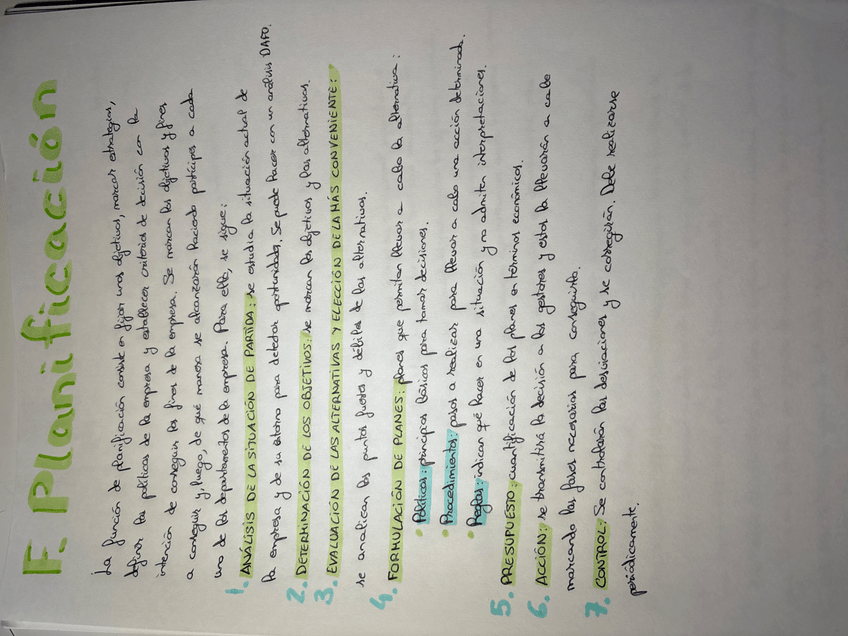 F. Planificación
La función de planificación consiste en fijar unos objetivos, marcar estrategias,
definir las políticas de la empresa y establecer criterios de decisión con la
intención de conseguir los fines de la empresa. Se marcan los objetivos y fines
a conseguir y, luego, de qué manera se alcanzarán haciendo partícipes a cada
uno de los departamentos de la empresa. Para ello, se sigue:
1. ANÁLISIS DE LA SITUACIÓN DE PARTIDA: se estudia la situación actual de
la empresa y de su entorno para detectar oportunidades. Se puede hacer con un análisis DAFO.
2. DETERMINACIÓN DE LOS OBJETIVOS: se marcan los objetivos y las alternativas.
3. EVALUACIÓN DE LAS ALTERNATIVAS Y ELECCIÓN DE LA MÁS CONVENIENTE:
se analizan los puntos fuertes y débiles de las alternativas.
4. FORMULACIÓN DE PLANES: planes que permitan llevar a cabo la alternativa:
• Políticas: principios básicos para tomar decisiones.
• Procedimientos: pasos a realizar para llevar a cabo una acción determinada.
• Reglas: indican qué hacer en una situación y no admiten interpretaciones.
5. PRESUPUESTO: cuantificación de los planes en términos económicos.
6. ACCIÓN: se transmitirá la decisión a los gestores y estos la llevarán a cabo
marcando las fases necesarias para conseguirlo.
7. CONTROL: Se controlarán las desviaciones y se corregirán. Debe realizarse
periódicamente.